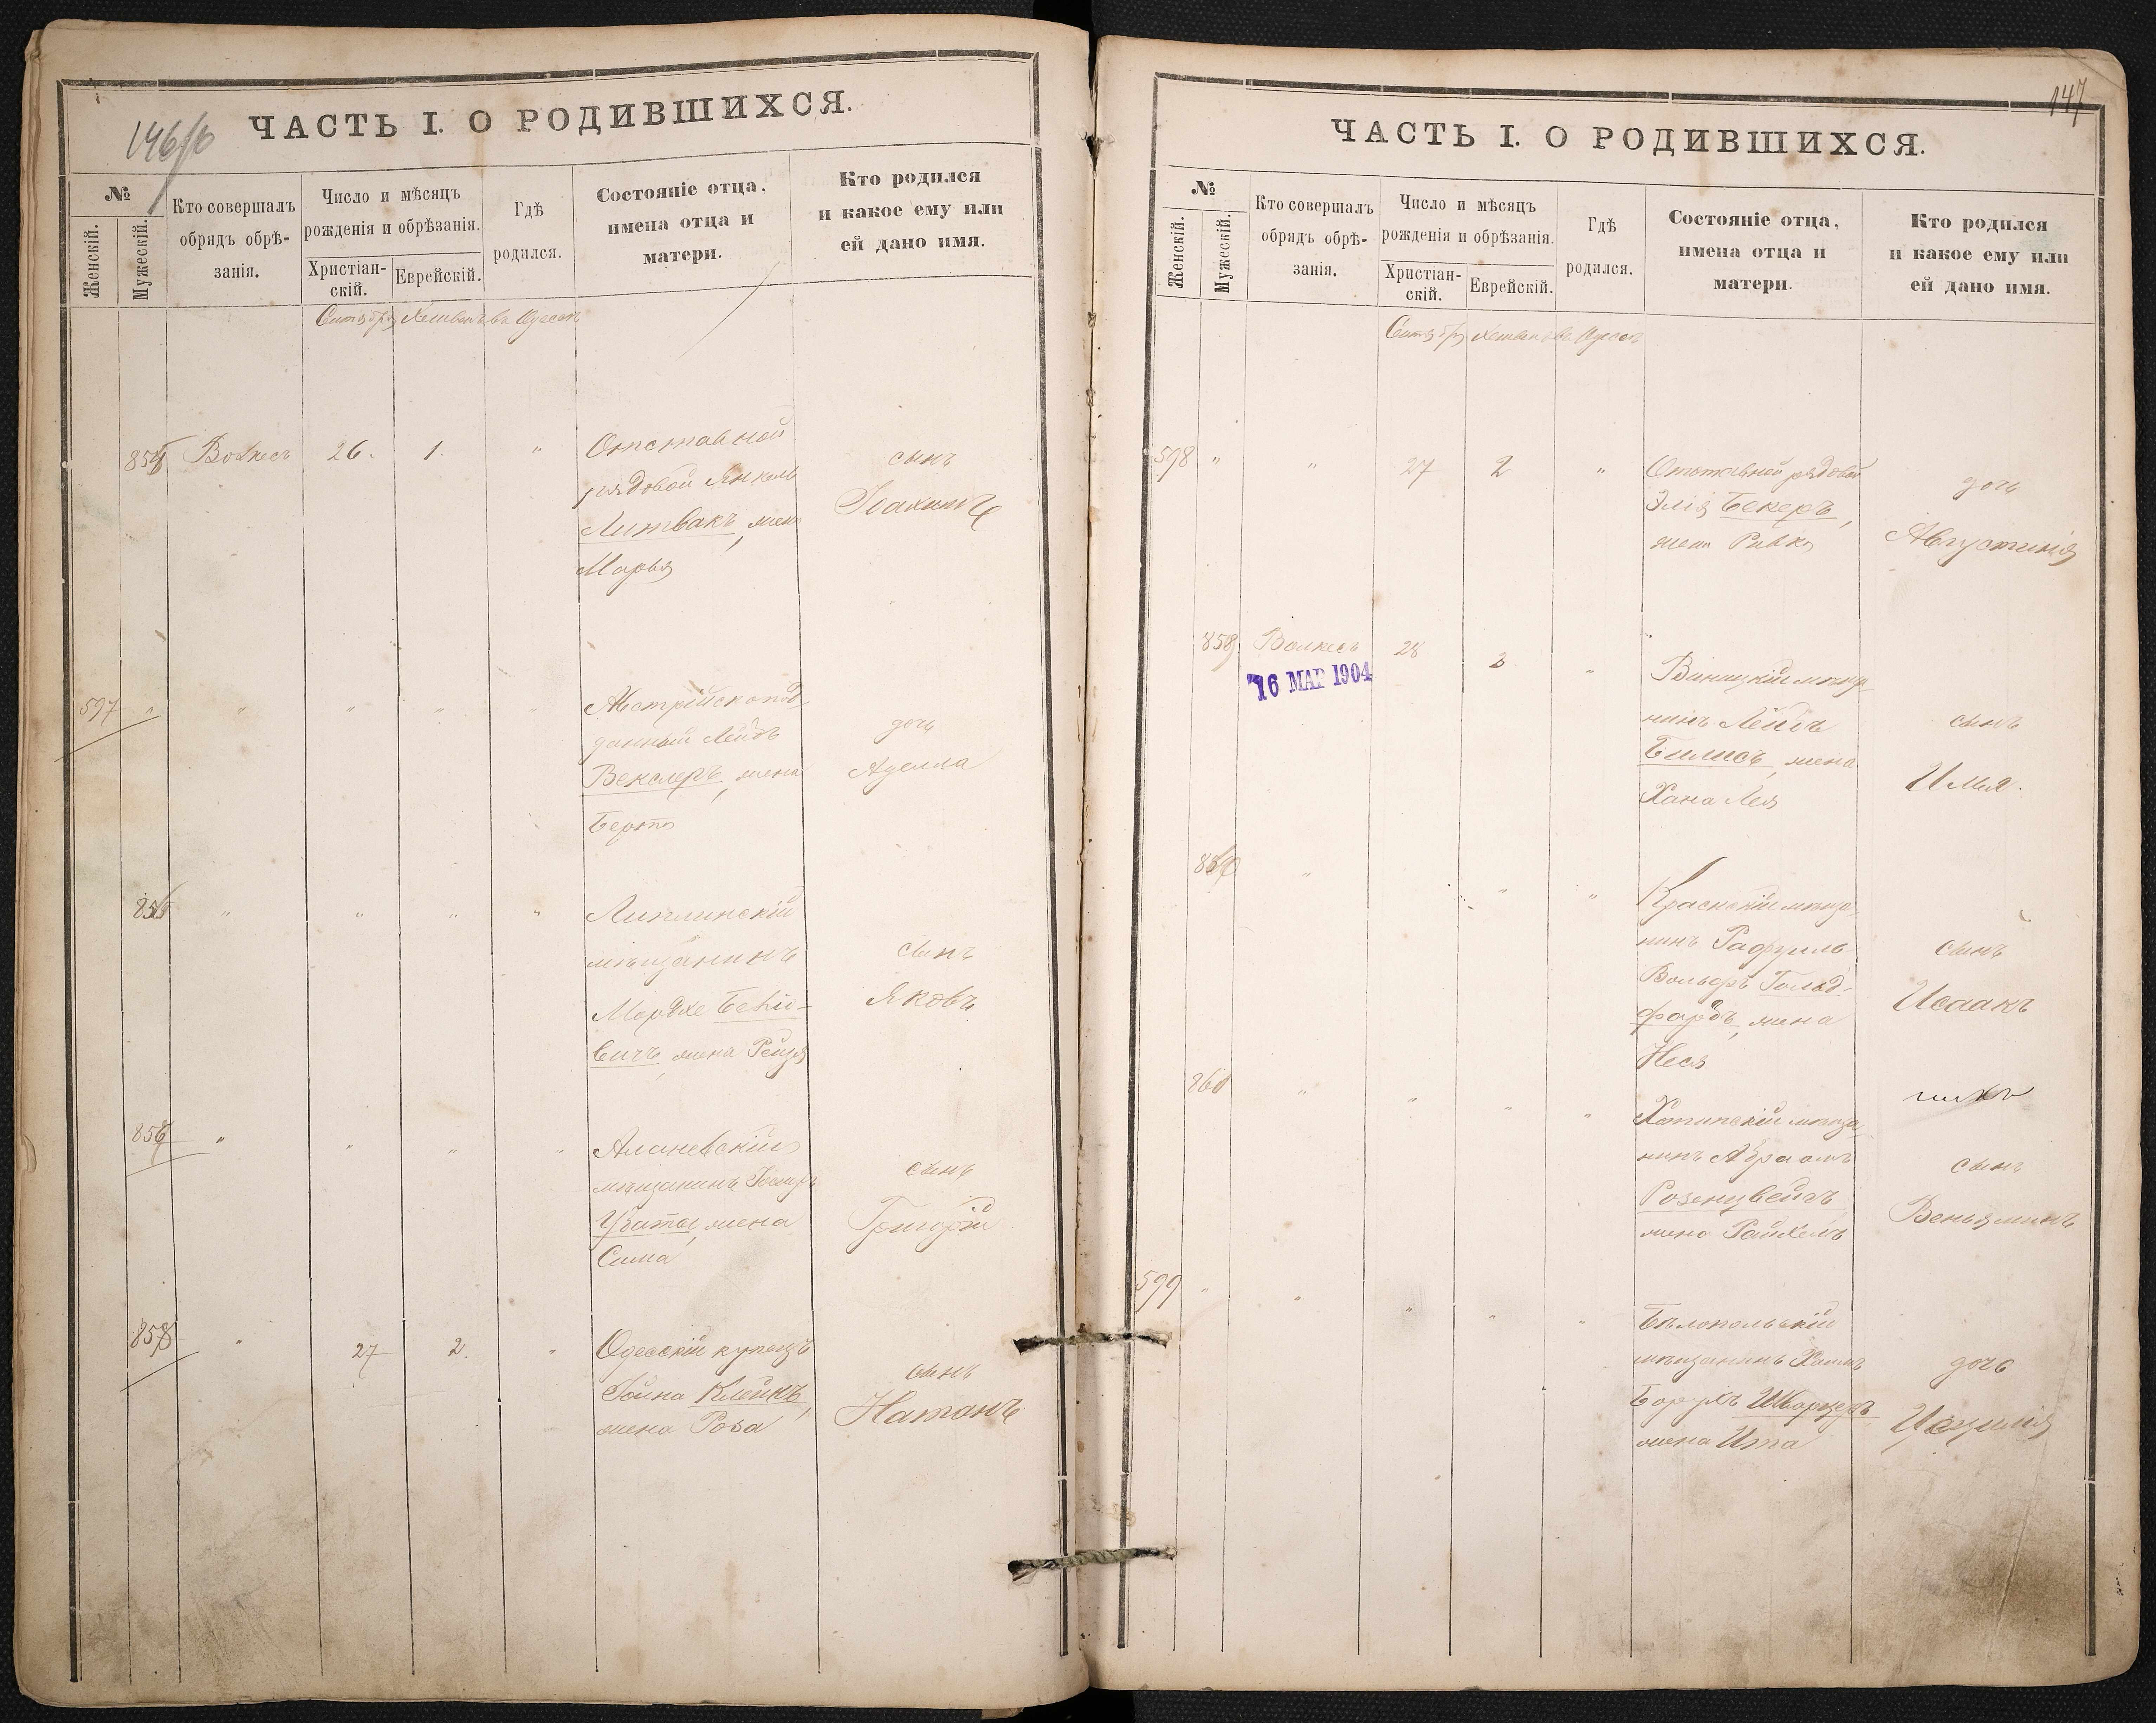 146/b
ЧАСТЬ I. О РОДИВШИХСЯ.
№
Женскій.
Мужескій.
Кто совершалъ
обрядъ обрѣ-
занія.
Число и мѣсяцъ
рожденія и обрѣзанія.
Христіан-
скій.
Еврейскій.
Гдѣ
родился.
Состояніе отца,
имена отца и
матери.
Кто родился
и какое ему или
ей дано имя.
Сентября Хешванъ въ Одессѣ
26. 1. " Отставной
рядовой Янкель
Литвакъ, жена
Марья
сынъ
Іоахимъ
597 " " " " " Австрійскопод
данный Лейбъ
Векслеръ, жена
Берта
дочь
Аделла
" " " "
мѣщанинъ
Мордхе
вичъ, жена Рейзя
сынъ
Яковъ
" " " " Ананевскій
мѣщанинъ
жена
Сима
сынъ
Григорій
" 27 2. " Одесскій купецъ
Іойна Клейнъ,
жена Роза
сынъ
Натанъ
147
ЧАСТЬ I. О РОДИВШИХСЯ.
№
Женскій.
Мужескій.
Кто совершалъ
обрядъ обрѣ-
занія.
Число и мѣсяцъ
рожденія и обрѣзанія.
Христіан-
скій.
Еврейскій.
Гдѣ
родился.
Состояніе отца,
имена отца и
матери.
Кто родился
и какое ему или
ей дано имя.
Сентября Хешванъ въ Одессѣ
598 " " 27 2 " Отставной рядовой
Элія Бекеръ,
жена Ривка
дочь
Августинія
859 28 3 "
16 МАР 1904
Виницкій мѣща
нинъ Лейбъ
Билисъ, жена
Хана Лея
сынъ
Илья.
" " " Краснскій мѣща
нинъ Рафуиль
Вольфъ Гольд-
фарбъ, жена
Неся
сынъ
Исаакъ
" " " " Хотинскій мѣща
нинъ Абрамъ
Розенцвейгъ
жена Райхель
сынъ
Веньяминъ
599 " " " " " Бѣлопольскій
мѣщанинъ Хаимъ
Борухъ Шварцеръ
жена Ита
дочь
Цецилія